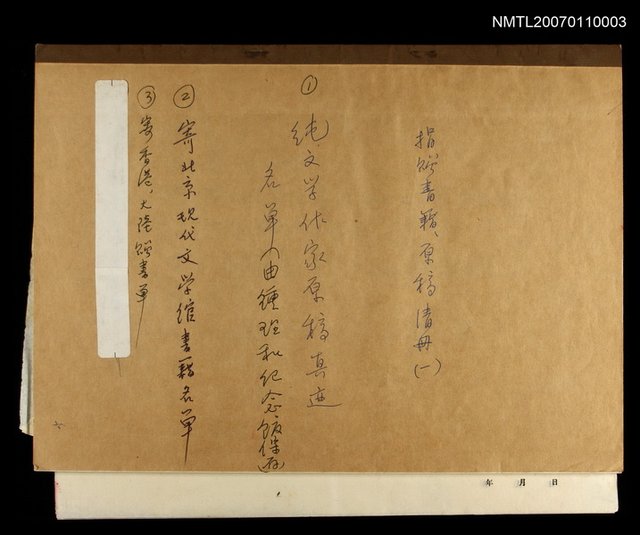 NMTL20070110003
捐贈書籍、原稿清冊(一)
① 純文學作家原稿真迹
名單(由鍾理和紀念館保存)
② 寄北京現代文學館書籍名單
③ 寄香港、大陸贈書單
年 月 日